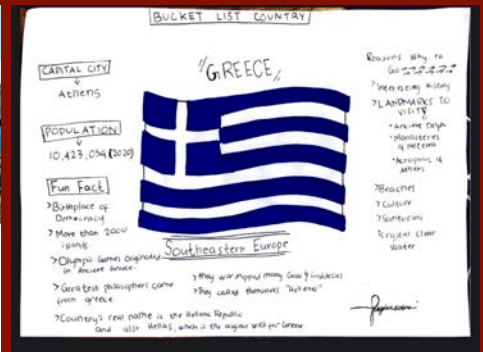 BUCKET LIST COUNTRY
"GREECE"
CAPITAL CITY
Athens
POPULATION
10,423,054 (2020)
Fun Fact
>Birthplace of
Democracy
>More than 2000
islands
>Olympic Games originated
in Ancient Greece
>Greatest philosophers came
from greece
>Country's real name is the Hellenic Republic
and also Hellas, which is the original word for Greece
Southeastern Europe
>they worshipped many Gods & Goddesses
>They called themselves "Hellenes"
Reasons why to
Go
>Interesting History
>LANDMARKS TO
VISIT
*Ancient Delphi
*Monasteries
of Meteora
*Acropolis of
Athens
>Beaches
>Culture
>Santorini
>Crystal Clear
Water